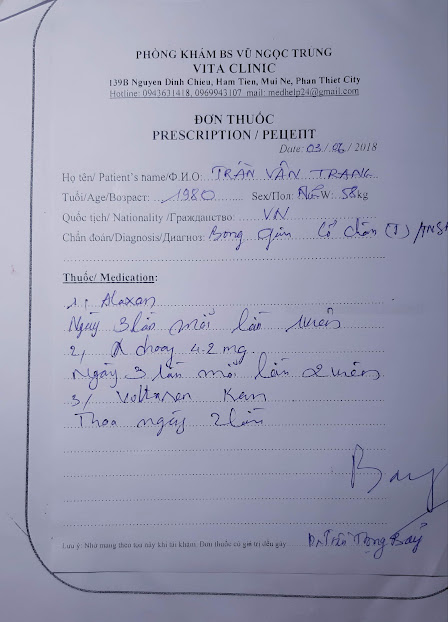 PHÒNG KHÁM BS VŨ NGỌC TRUNG
VITA CLINIC
139B Nguyen Dinh Chieu, Ham Tien, Mui Ne, Phan Thiet City
Hotline: 0943631418, 0969943107 mail: medhelp24@gmail.com
ĐƠN THUỐC
PRESCRIPTION / РЕЦЕПТ
Date: 03/06/2018
Họ tên/ Patient's name/Ф.И.О: TRẦN VÂN TRANG
Tuổi/Age/Возраст: 1980 Sex/Пол: Nữ W: 58kg
Quốc tịch/ Nationality /Гражданство: VN
Chẩn đoán/Diagnosis/Диагноз: Bong gân cổ chân (T) /
Thuốc/ Medication:
1, Alaxan
Ngày 3 lần mỗi lần 1 viên
2, α choay 4.2 mg
Ngày 3 lần mỗi lần 2 viên
3/ Voltaren
Thoa ngày 2 lần
Bay
Lưu ý: Nhớ mang theo toa này khi tái khám. Đơn thuốc có giá trị đến ngày
Trọng Bảy